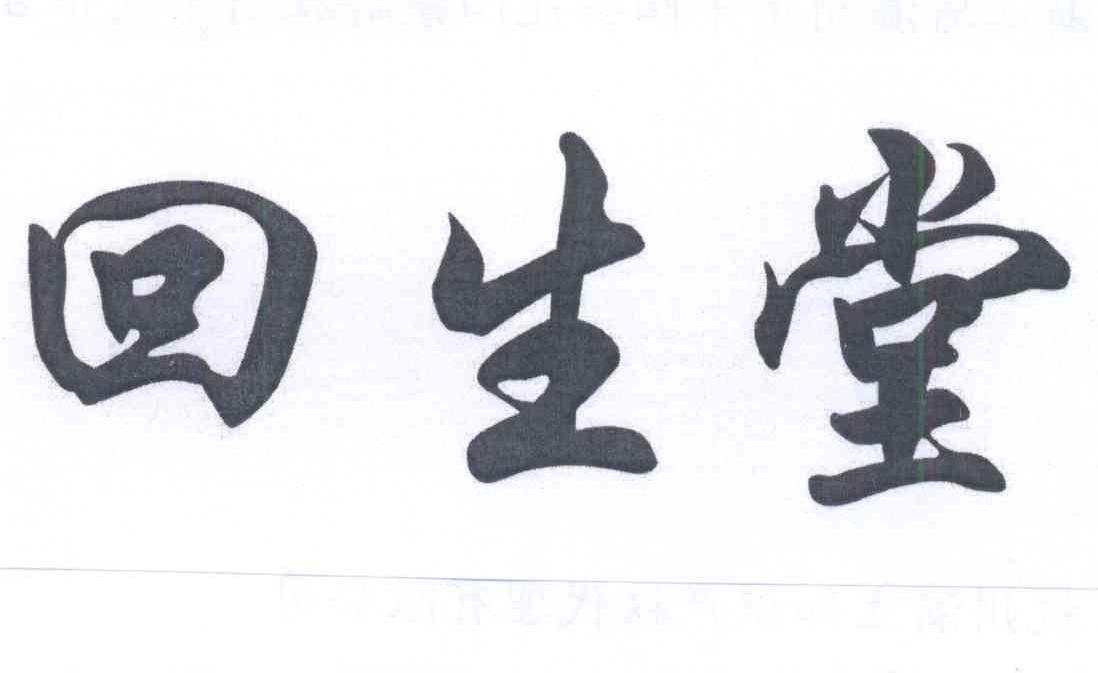 回生堂